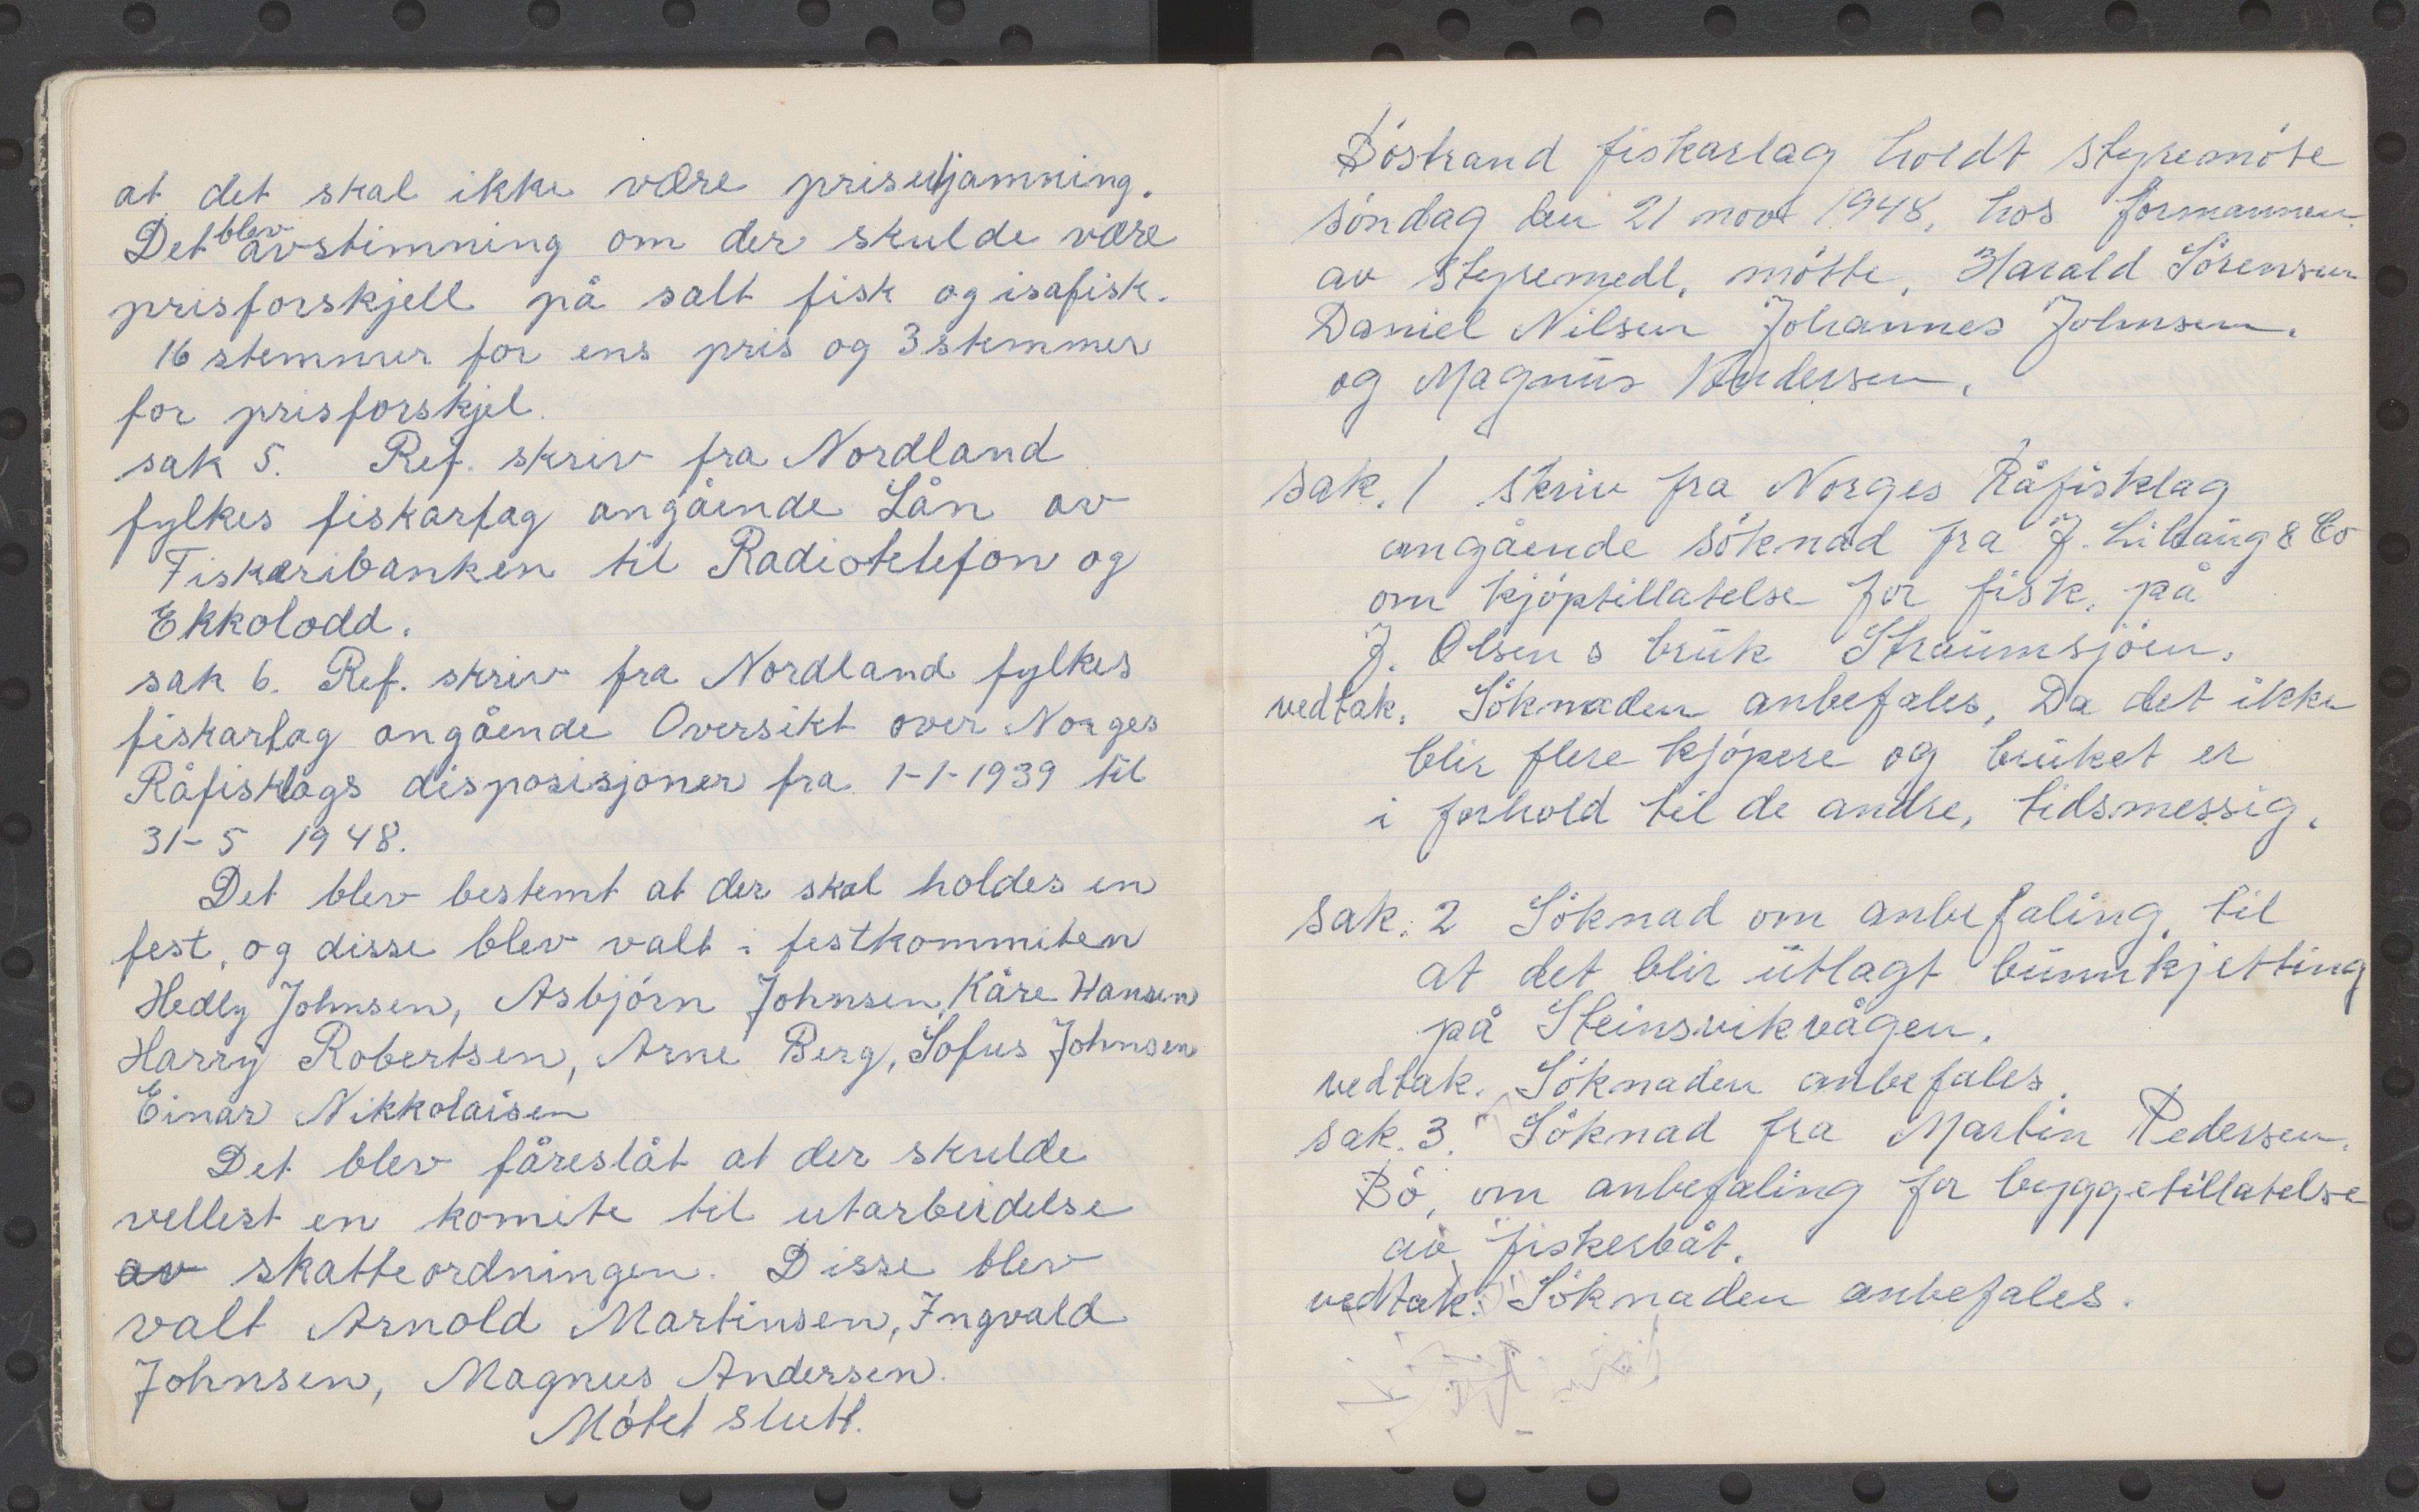 at det skal ikke være prisutjamning.
Det blev avstimning om der skulde være
prisforskjell på salt fisk og isafisk.
16 stemmer for ens pris og 3 stemmer
for prisforskjel.
sak 5. Ref. skriv fra Nordland
fylkes fiskarlag angående Lån av
Fiskeribanken til Radiotelefon og
Ekkolodd.
sak 6. Ref. skriv fra Nordland fylkes
fiskarlag angående Oversikt over Norges
Råfisklags disposisjoner fra 1-1-1939 til
31-5 1948.
Det blev bestemt at der skal holdes en
fest, og disse blev valt i festkommiten
Hedly Johnsen, Asbjörn Johnsen, Kåre Hansen
Harry Robertsen, Arne Berg, Sofus Johnsen
Einar Nikkolaisen
Det blev fåreslåt at der skulde
vellest en komite til utarbeidelse
av skatteordningen. Disse blev
valt Arnold Martinsen, Ingvald
Johnsen, Magnus Andersen.
Mötet slutt.
Böstrand fiskarlag holdt styremöte
söndag den 21 nov 1948, hos formannen.
av styremedl. mötte, Harald Sörensen
Daniel Nilsen Johannes Johnsen.
og Magnus Andersen.
sak. 1 skriv fra Norges Råfisklag
angående söknad fra J. & Co
om kjöptillatelse for fisk, på
J. Olsens bruk Straumsjöen.
vedtak. Söknaden anbefales, Da det ikke
blir flere kjöpere og bruket er
i forhold til de andre, tidsmessig.
sak. 2 Söknad om anbefaling, til
at det blir utlagt bunnkjetting
på Steinsvikvågen.
vedtak. Söknaden anbefales.
sak. 3. Söknad fra Martin Pedersen.
Bö, om anbefaling for byggetillatelse
av fiskerbåt.
vedtak. Söknaden anbefales.